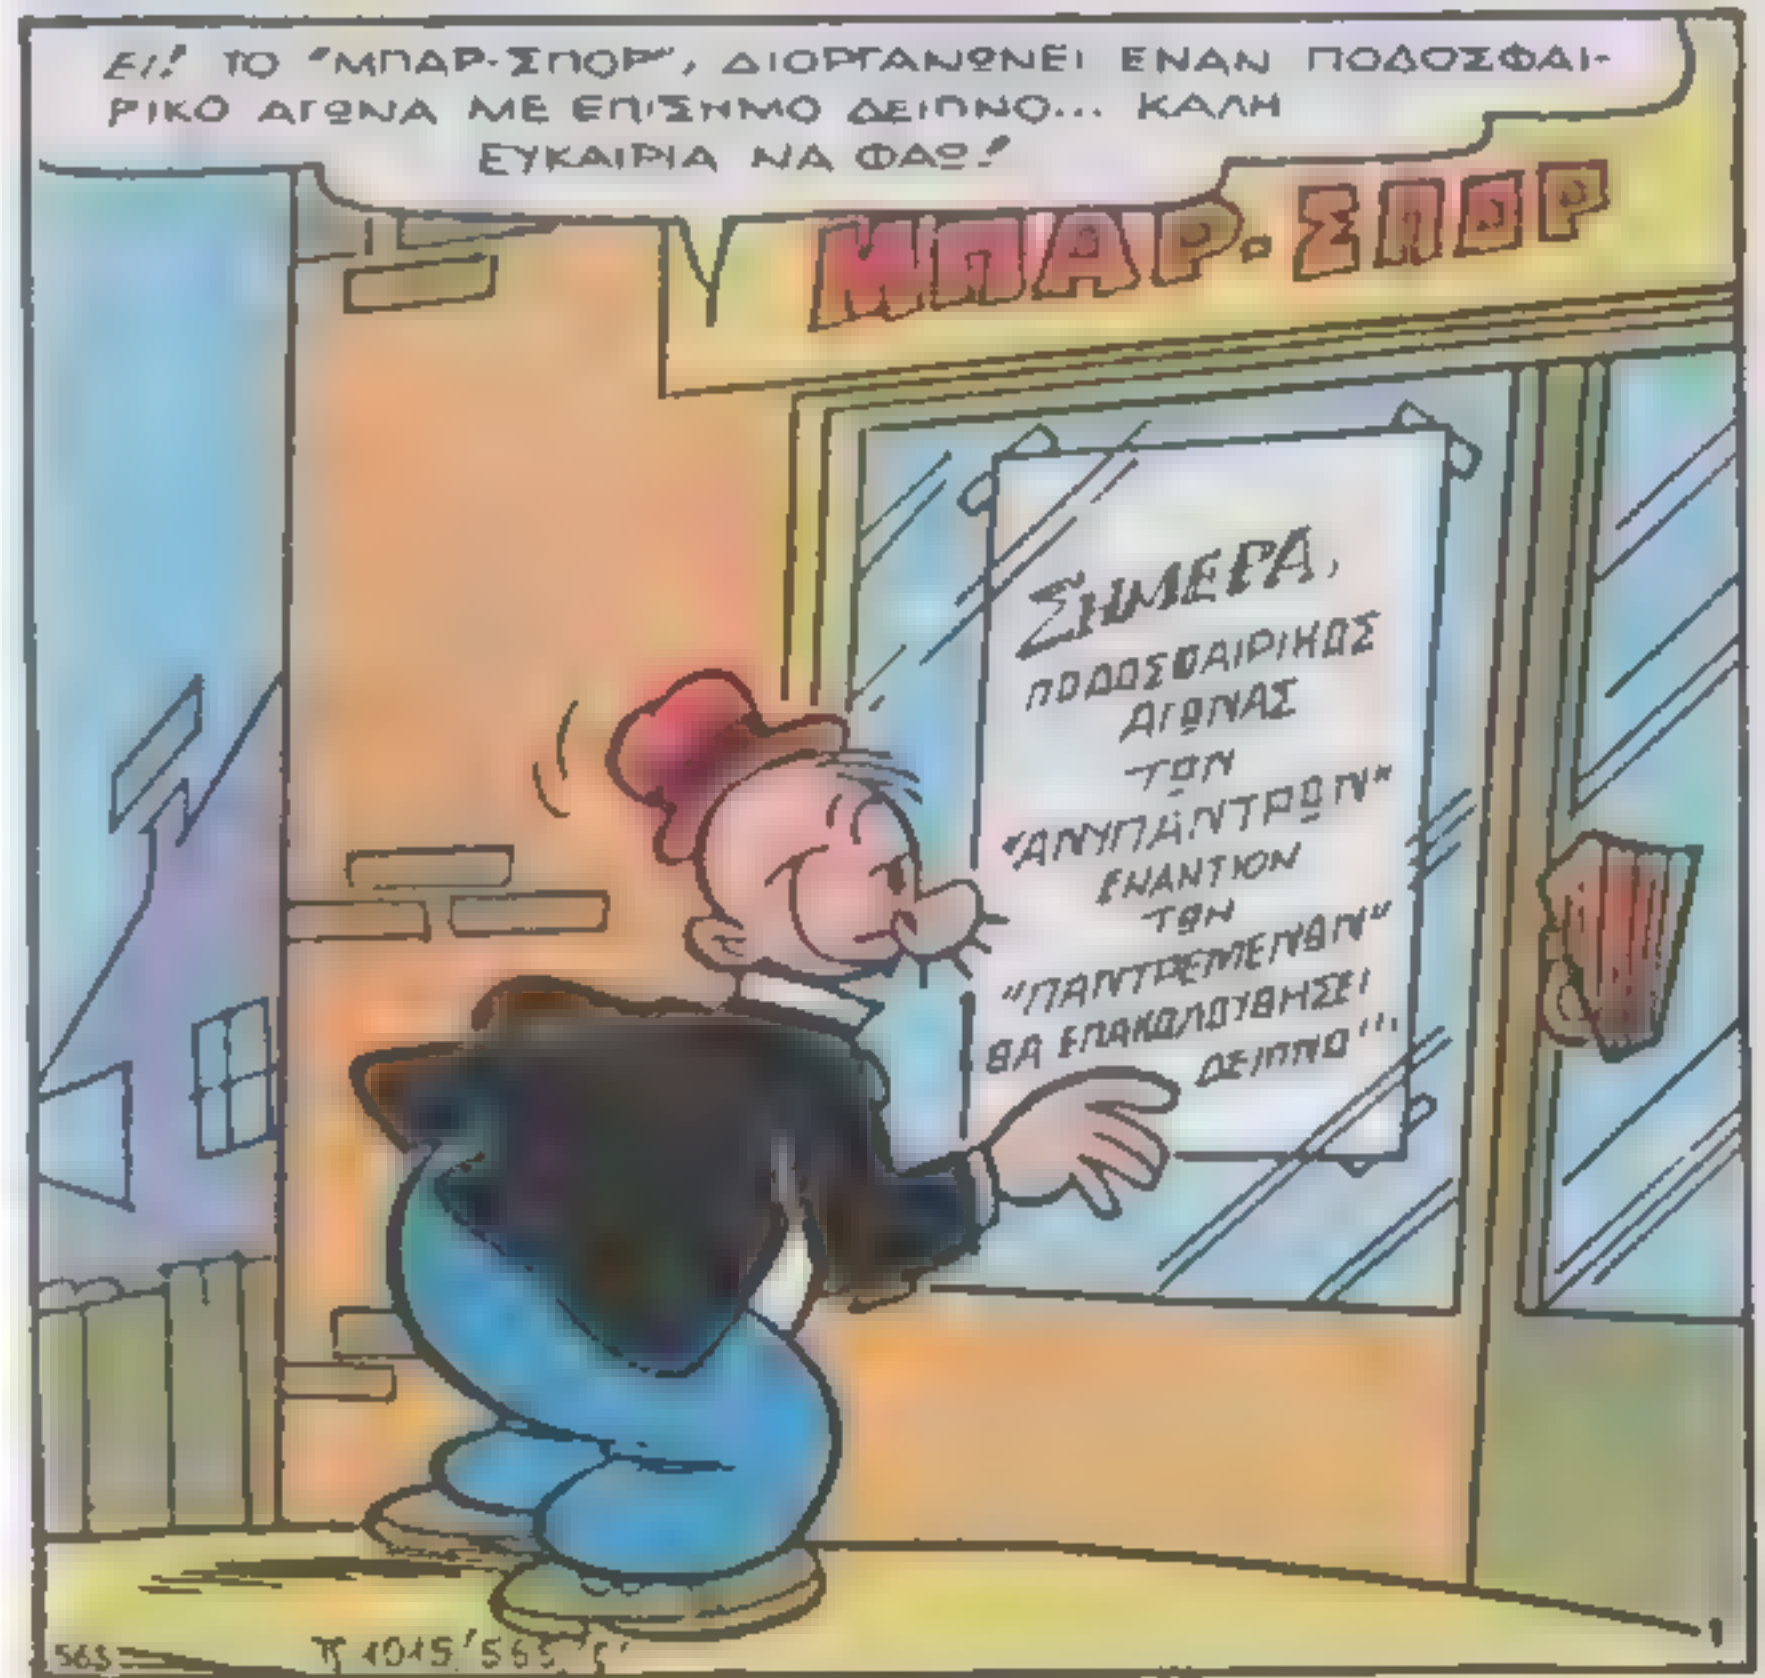 ΕΙ! ΤΟ "ΜΠΑΡ-ΣΠΟΡ", ΔΙΟΡΓΑΝΩΝΕΙ ΕΝΑΝ ΠΟΔΟΣΦΑΙ-
ΡΙΚΟ ΑΓΩΝΑ ΜΕ ΕΠΙΣΗΜΟ ΔΕΙΠΝΟ... ΚΑΛΗ
ΕΥΚΑΙΡΙΑ ΝΑ ΦΑΩ!
ΜΠΑΡ-ΣΠΟΡ
ΣΗΜΕΡΑ,
ΠΟΔΟΣΦΑΙΡΙΚΟΣ
ΑΓΩΝΑΣ
ΤΩΝ
"ΑΝΥΠΑΝΤΡΩΝ"
ΕΝΑΝΤΙΟΝ
ΤΩΝ
"ΠΑΝΤΡΕΜΕΝΩΝ"
ΘΑ ΕΠΑΚΟΛΟΥΘΗΣΕΙ
ΔΕΙΠΝΟ"...
563
1015 563
1